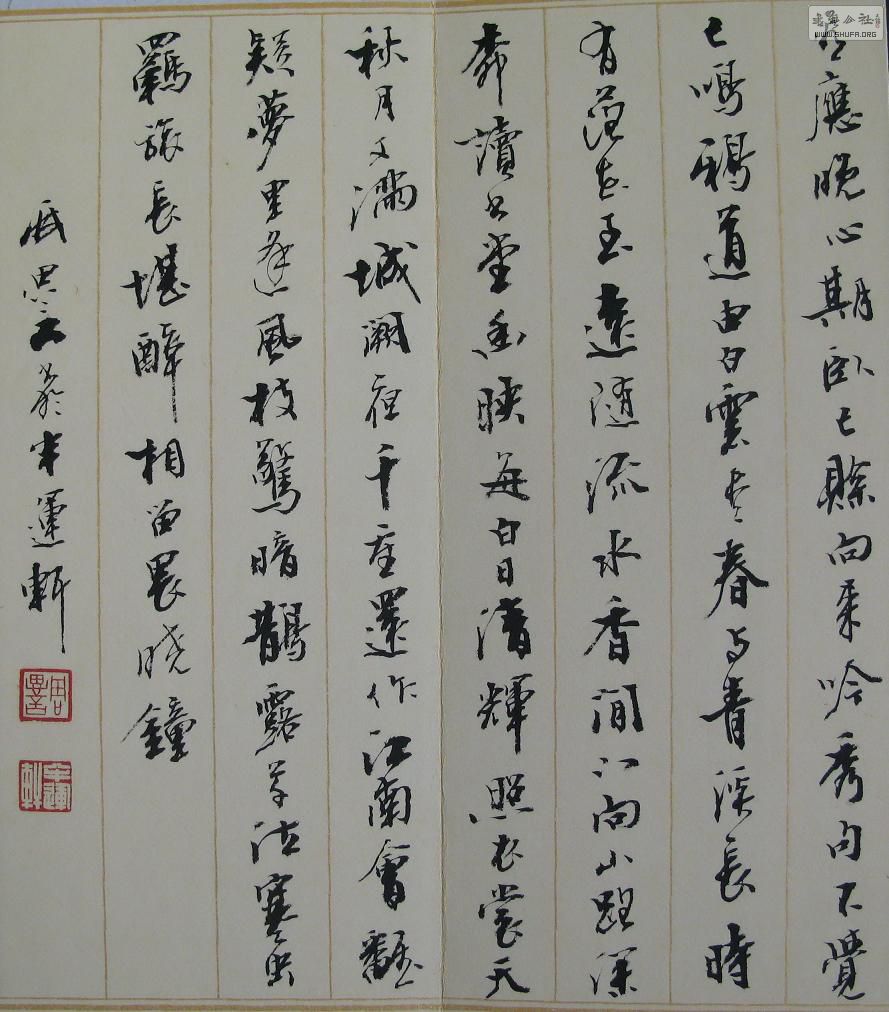 應晚心期卧已賒向来吟秀句不覺
已鳴鴉道由白雲盡春與青溪長時
有落花至遠隨流水香閒門向山路深
深讀書堂幽映每白日清輝照衣裳天
秋月又滿城闕夜千重還作江南會翻
疑夢里逢風枝驚暗鵲露草泣寒蟲
羈旅長堪醉相留畏曉鐘
運軒
WWW.SHUFA.ORG